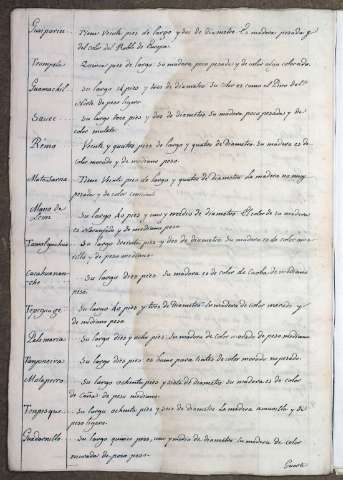 Guaparin Tiene Veinte pies de largo y dos de diametro Es madera pesada y
del color del Roble de Europa.
Trompilo Quince pies de largo su madera poco pesada y de color algo colorado.
Guamachil su largo 16 pies y tres de diametro Su color es como el Pino del
Norte de peso ligero
Sauce su largo trece pies y dos de diametro su madera poco pesada y de
color mulato.
Rémo Veinte y quatro pies de largo y quatro de diametro. su madera es de
color morado y de mediano peso.
Matasarna Tiene Veinte pies de largo y quatro de diametro La madera no muy
pesada y de color
Mano de Leon Su largo 40 pies y uno y medio de diametro El color de su madera
es Naranjado y de mediano peso
su largo veinte pies y dos de diametro su madera es de color ama-
rillo y de peso mediano.
Cacahuanan-
che Su largo Diez pies su madera es de color de Caoba de mediano
peso.
su largo 40 pies y tres de diametro la madera de color morado y
de mediano peso
Palo maria su largo diez y ocho pies. su madera de color morado de peso mediano
su largo diez pies es bueno para tintes de color morado no pesado.
Mataperro su largo ochenta pies y siete de diametro su madera es de color
de Caña de peso mediano.
Tempisque su largo ochenta pies y seis de diametro La madera amarilla y de
peso ligero.
su largo quince pies, uno y medio de diametro su madera de color
encarnada de poco peso.